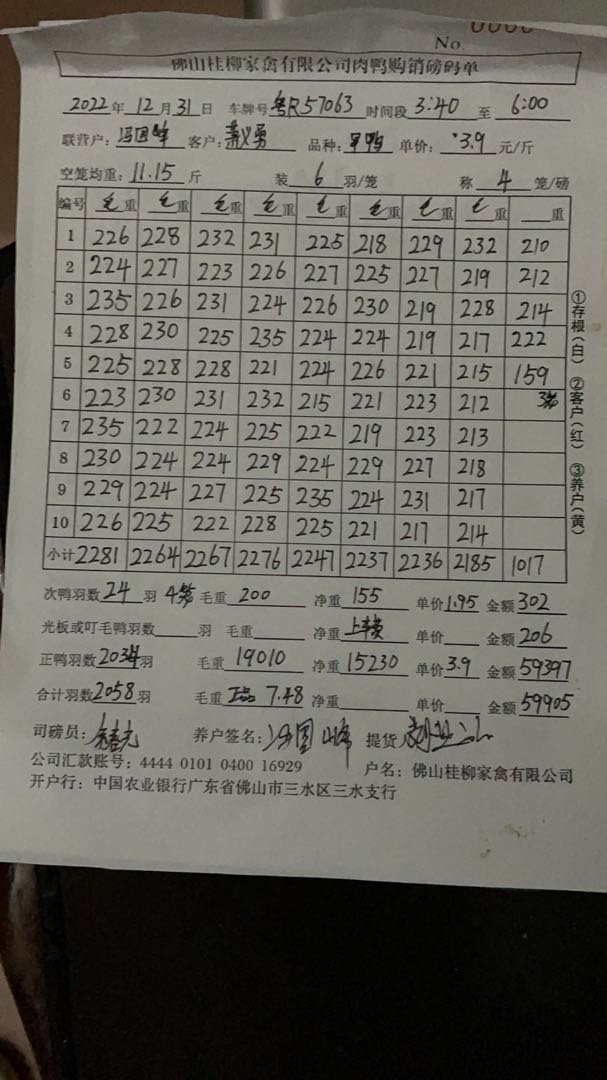 No.
佛山桂柳家禽有限公司肉鸭购销磅码单
2022年 12月 31日 车牌号 粤R57063 时间段 3:40 至 6:00
联营户: 冯国峰 客户: 萧义勇 品种: 单价: 3.9 元/斤
空笼均重: 11.15 斤 装 6 羽/笼 称 4 笼/磅
编号 毛重 毛重 毛重 毛重 毛重 毛重 毛重 毛重 重
1 226 228 232 231 225 218 229 232 210
2 224 227 223 226 227 225 227 219 212
3 235 226 231 224 226 230 219 228 214
4 228 230 225 235 224 224 219 217 222
5 225 228 228 221 224 226 221 215 159
6 223 230 231 232 215 221 223 212 3笼
7 235 222 224 225 222 219 223 213
8 230 224 224 229 224 229 227 218
9 229 224 227 225 235 224 231 217
10 226 225 222 228 225 221 217 214
小计 2281 2264 2267 2276 2247 2237 2236 2185 1017
次鸭羽数 24 羽 4笼 毛重 200 净重 155 单价 1.95 金额 302
光板或叮毛鸭羽数 羽 毛重 净重 上车费 单价 金额 206
正鸭羽数 2034 羽 毛重 19010 净重 15230 单价 3.9 金额 59397
合计羽数 2058 羽 毛重 正品 7.48 净重 单价 金额 59905
司磅员: 养户签名: 冯国峰 提货人
公司汇款账号: 4444 0101 0400 16929 户名: 佛山桂柳家禽有限公司
开户行: 中国农业银行广东省佛山市三水区三水支行
①存根(白) ②客户(红) ③养户(黄)